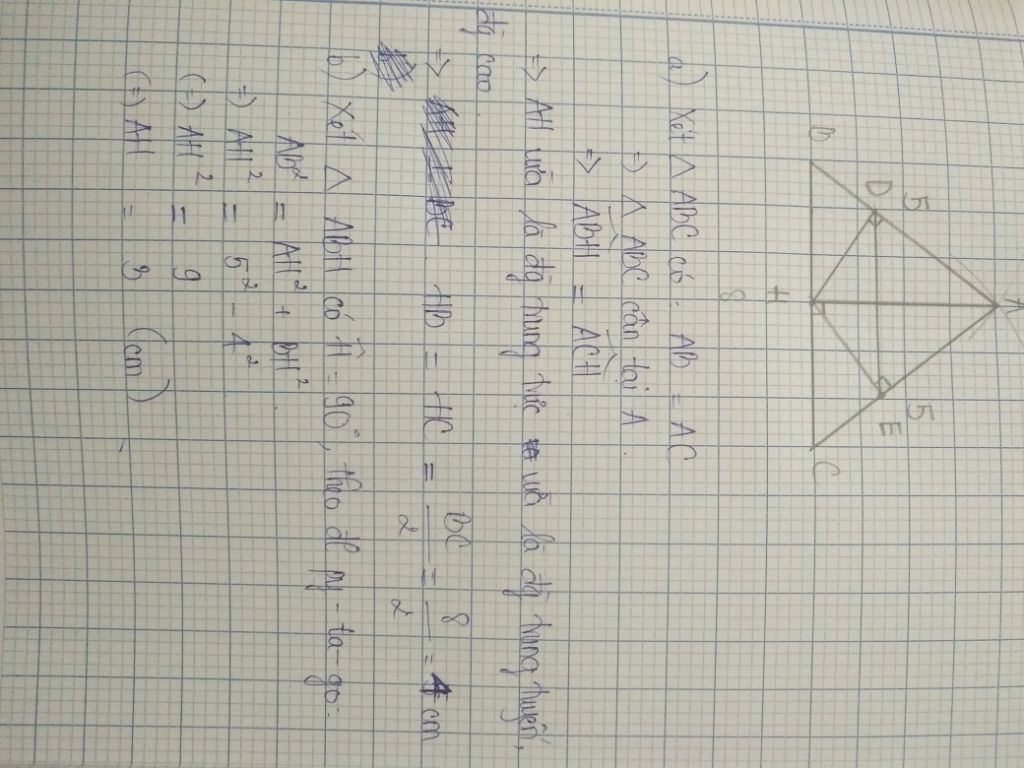 A
5
5
D
E
B
H
C
8
a) Xét Δ ABC có: AB = AC
=> Δ ABC cân tại A.
=> ABH = ACH
=> AH vừa là đg trung trực vừa là đg trung tuyến,
đg cao
=> HB = HC = BC/2 = 8/2 = 4 cm
b) Xét Δ ABH có Ĥ = 90°, theo đl py-ta-go:
AB² = AH² + BH²
=> AH² = 5² - 4²
(=) AH² = 9
(=) AH = 3 (cm)